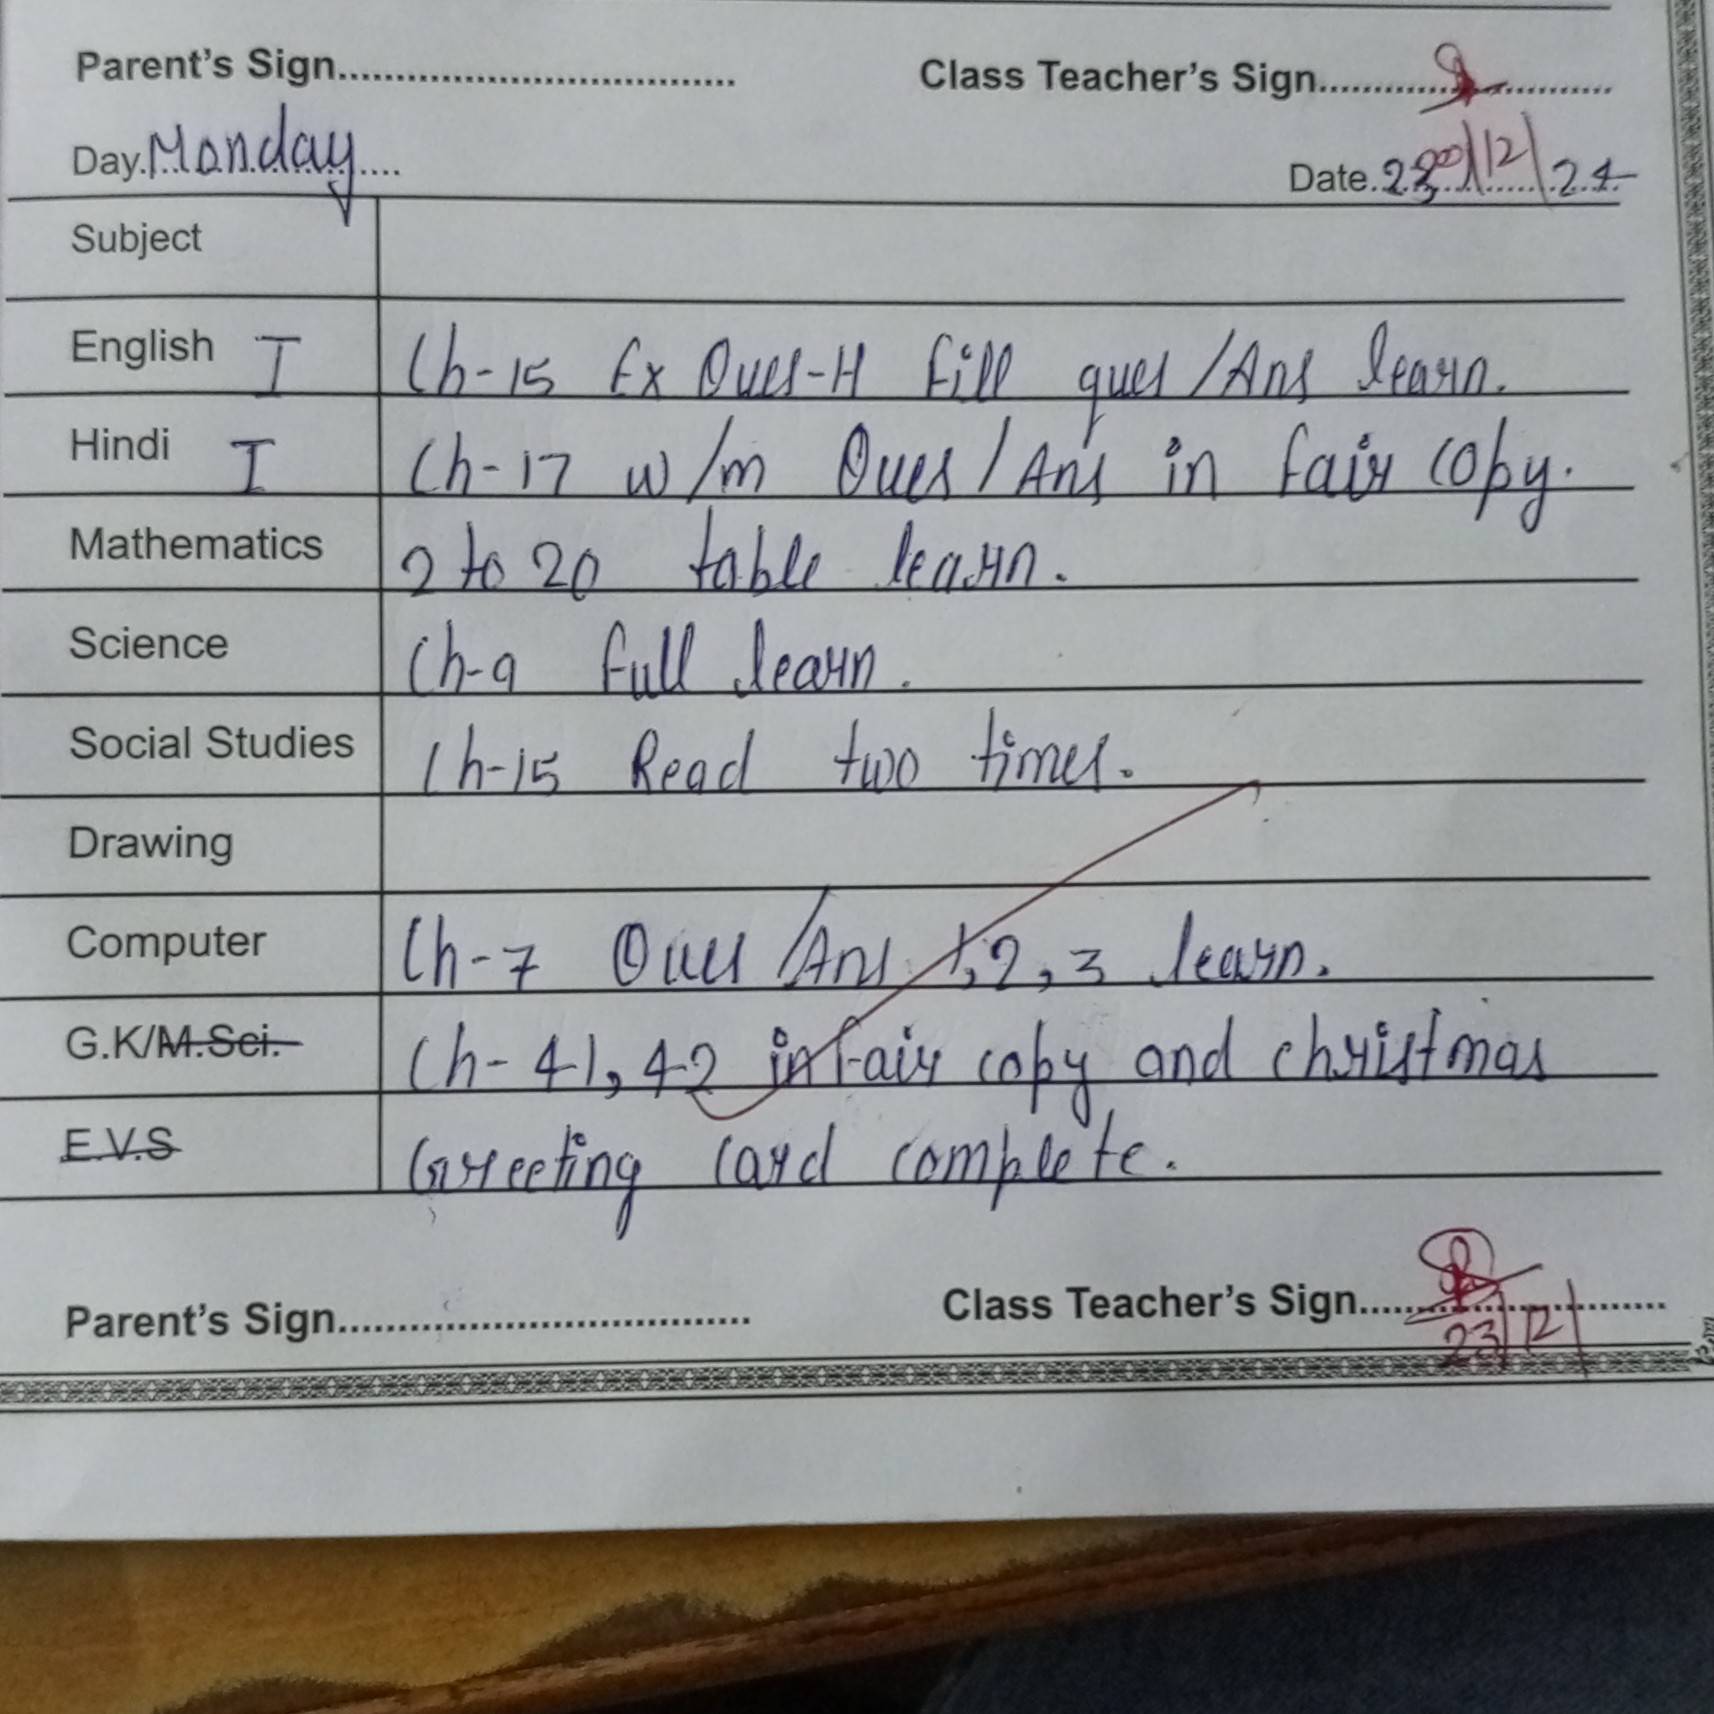 Parent's Sign.................................. Class Teacher's Sign.........................
Day.Monday....
Date.23/12/24
Subject
English I Ch-15 Ex Ques-H fill ques/Ans learn.
Hindi I Ch-17 w/m Ques/Ans in fair copy.
Mathematics 2 to 20 table learn.
Science Ch-9 full learn.
Social Studies Ch-15 Read two times.
Drawing
Computer Ch-7 Ques/Ans 1,2,3 learn.
G.K/M.Sci. Ch-41,42 in fair copy and christmas
E.V.S Greeting card complete.
Parent's Sign................................... Class Teacher's Sign..........................
23/12/